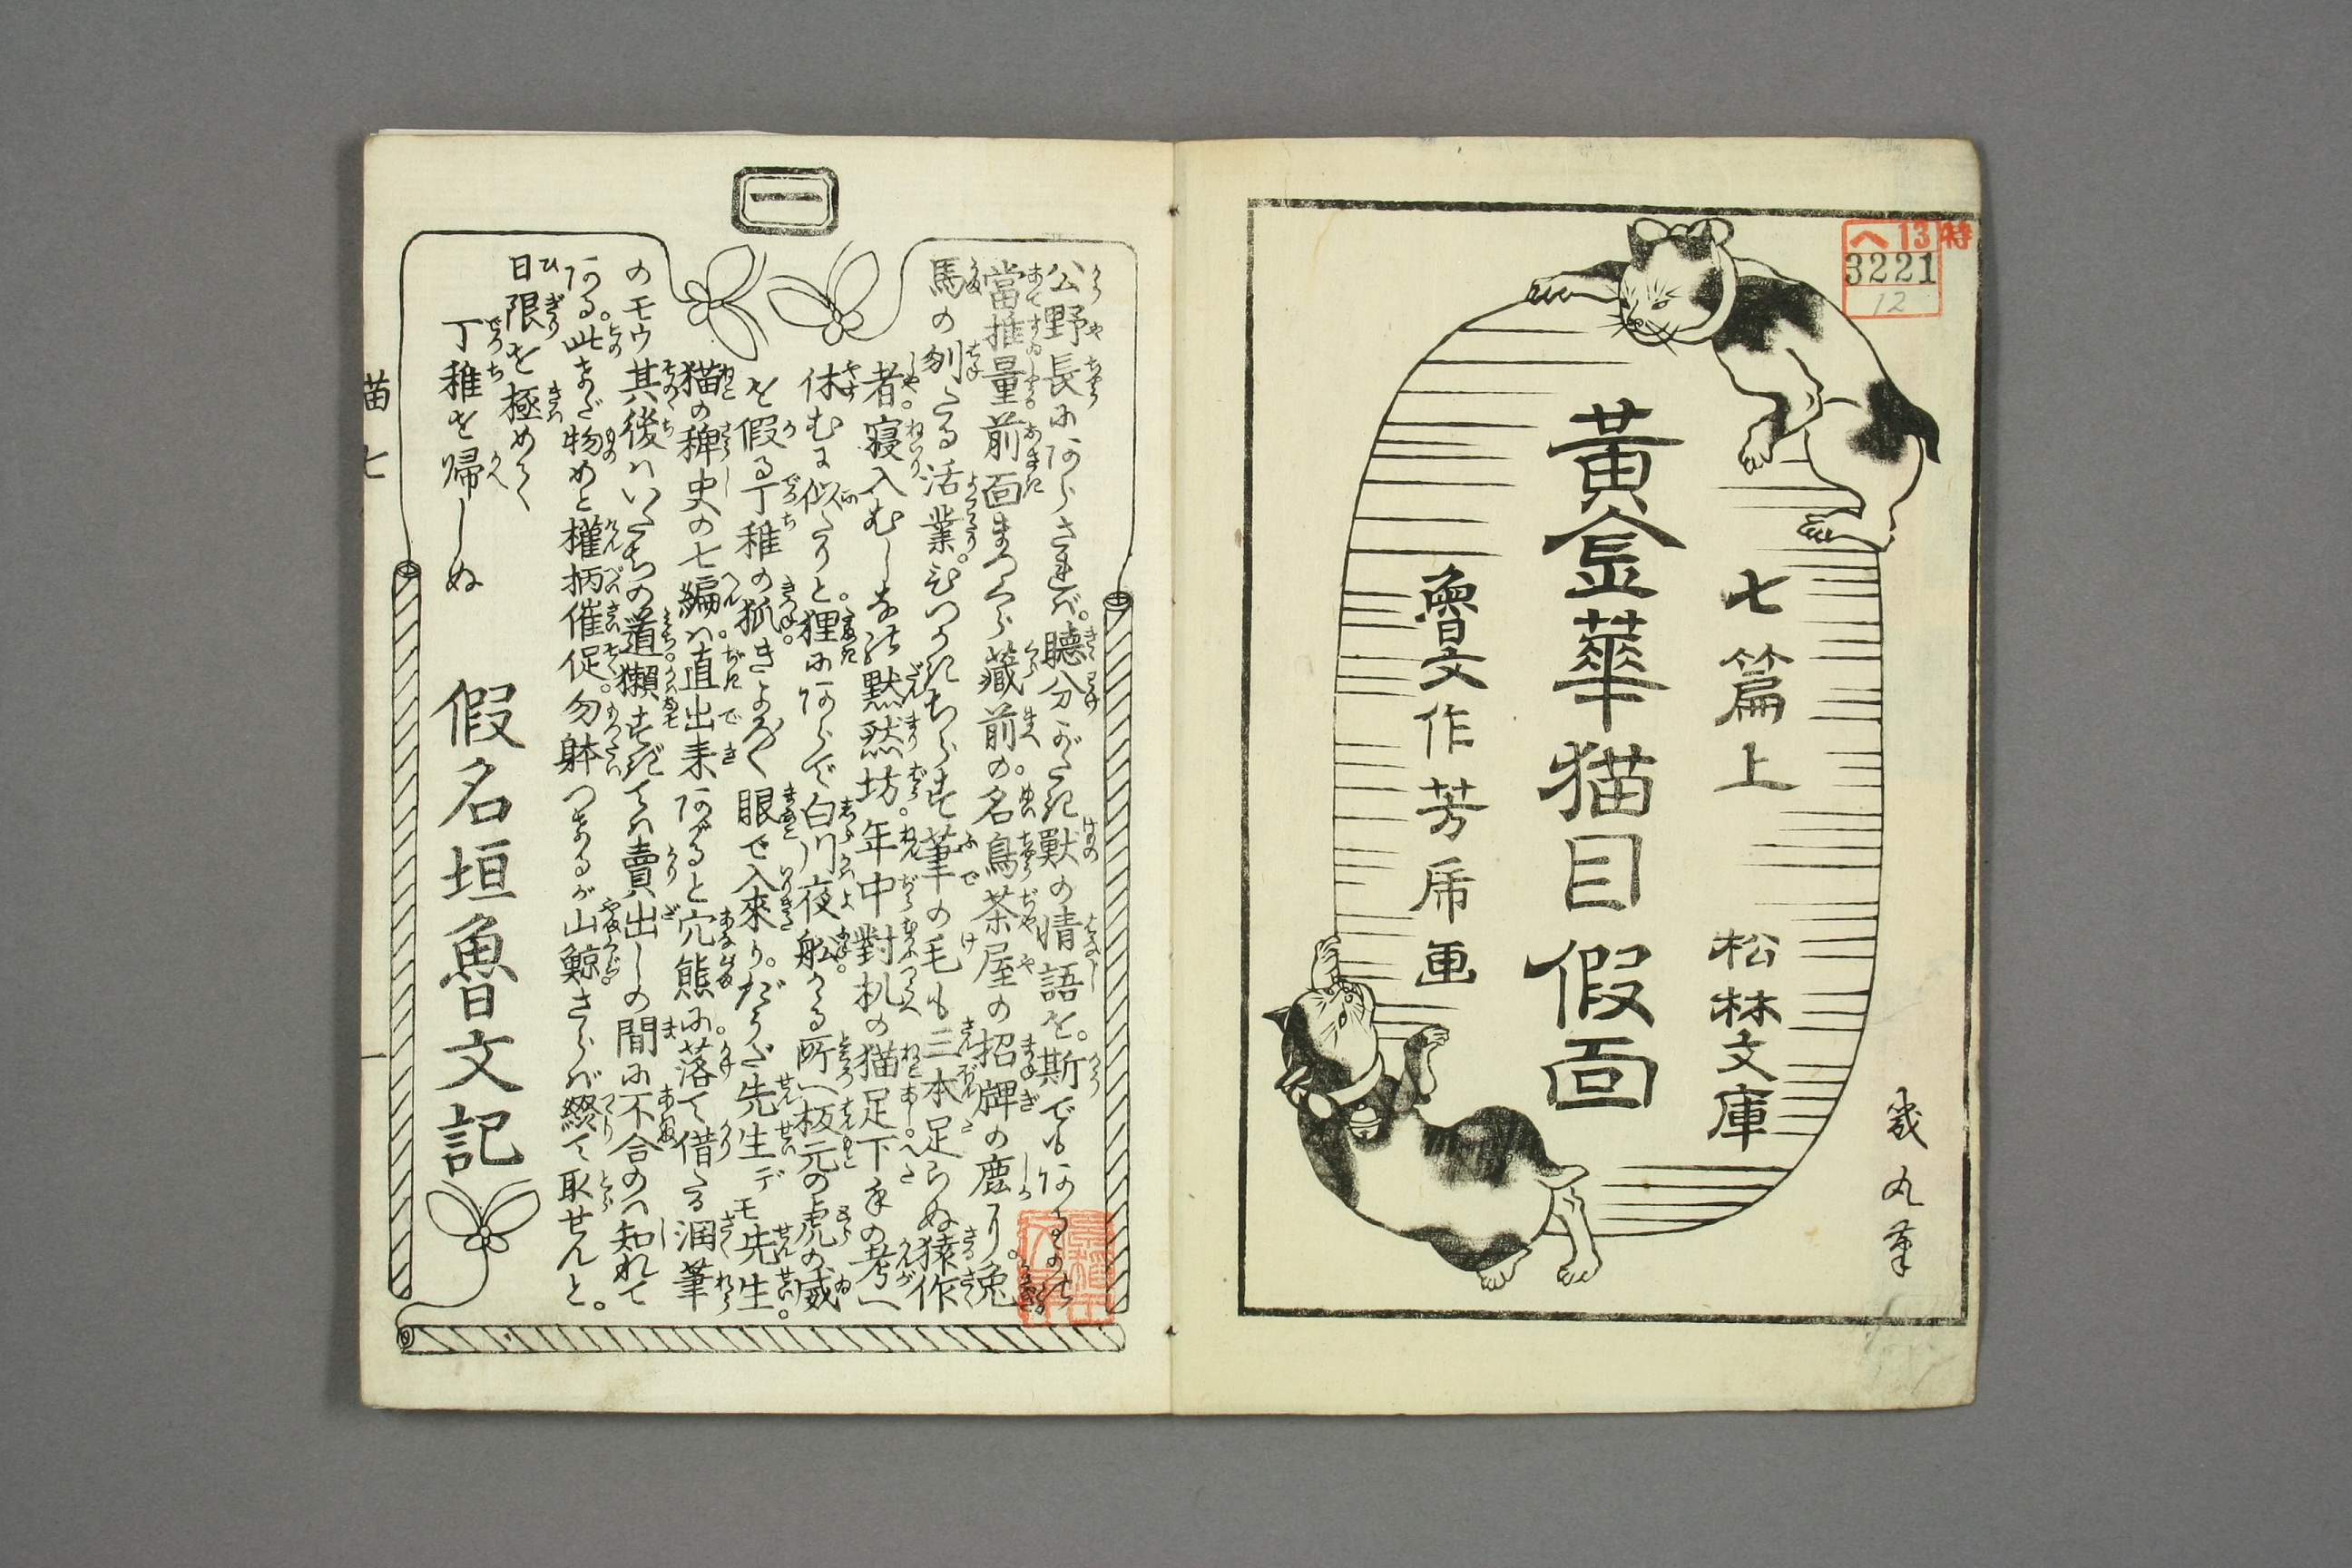 特
ヘ13
3221
12
七篇上
松林文庫
黃金華猫目假面
魯文作芳虎画
幾丸筆
一
公野長にあらされば。聴分がたき獣の情語を。斯でもあるめへと
當推量前面まつくら藏前の。名鳥茶屋の招牌の鹿り。兔
馬の刎たる活業。
筆の毛も三本足らぬ猿作
者。寝入むじなの默然坊。年中對机の猫足下手の考へ
休むに似たりと。狸にあらで白川夜船。かゝる所へ板元の虎の威
を假る丁稚の狐。きよろ〳〵眼で入來り。だうだ先生デモ先生。
猫の稗史の七編。ハ直出来あがると穴熊に落て。借たる潤筆
のモウ其後ハいたちの道。獺
賣出しの間に不合のハ知れて
ある。此まだ物めと權柄催促。勿躰つまるが山鯨さらバ綴て取せんと。
日限を極めて
丁稚を帰しぬ
假名垣魯文記
猫七
一